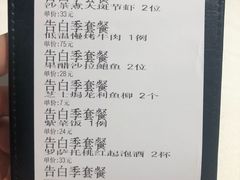 沙茶煮大斑节虾 2位
单价:33元
告白季套餐
低温慢烤牛肉 1例
单价:75元
告白季套餐
果醋沙拉鲍鱼 2位
单价:28元
告白季套餐
芝士焗尼利鱼柳 2个
单价:7元
告白季套餐
紫菜饭 1例
单价:24元
告白季套餐
罗萨红桃红起泡酒 2杯
单价:33元
告白季套餐